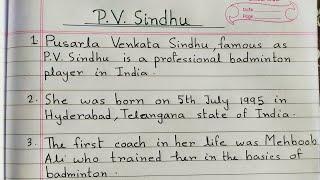 P.V. Sindhu
Date
Page
1. Pusarla Venkata Sindhu, famous as
P.V. Sindhu is a professional badminton
player in India.
2. She was born on 5th July 1995 in
Hyderabad, Telangana state of India.
3. The first coach in her life was Mehboob
Ali who trained her in the basics of
badminton.